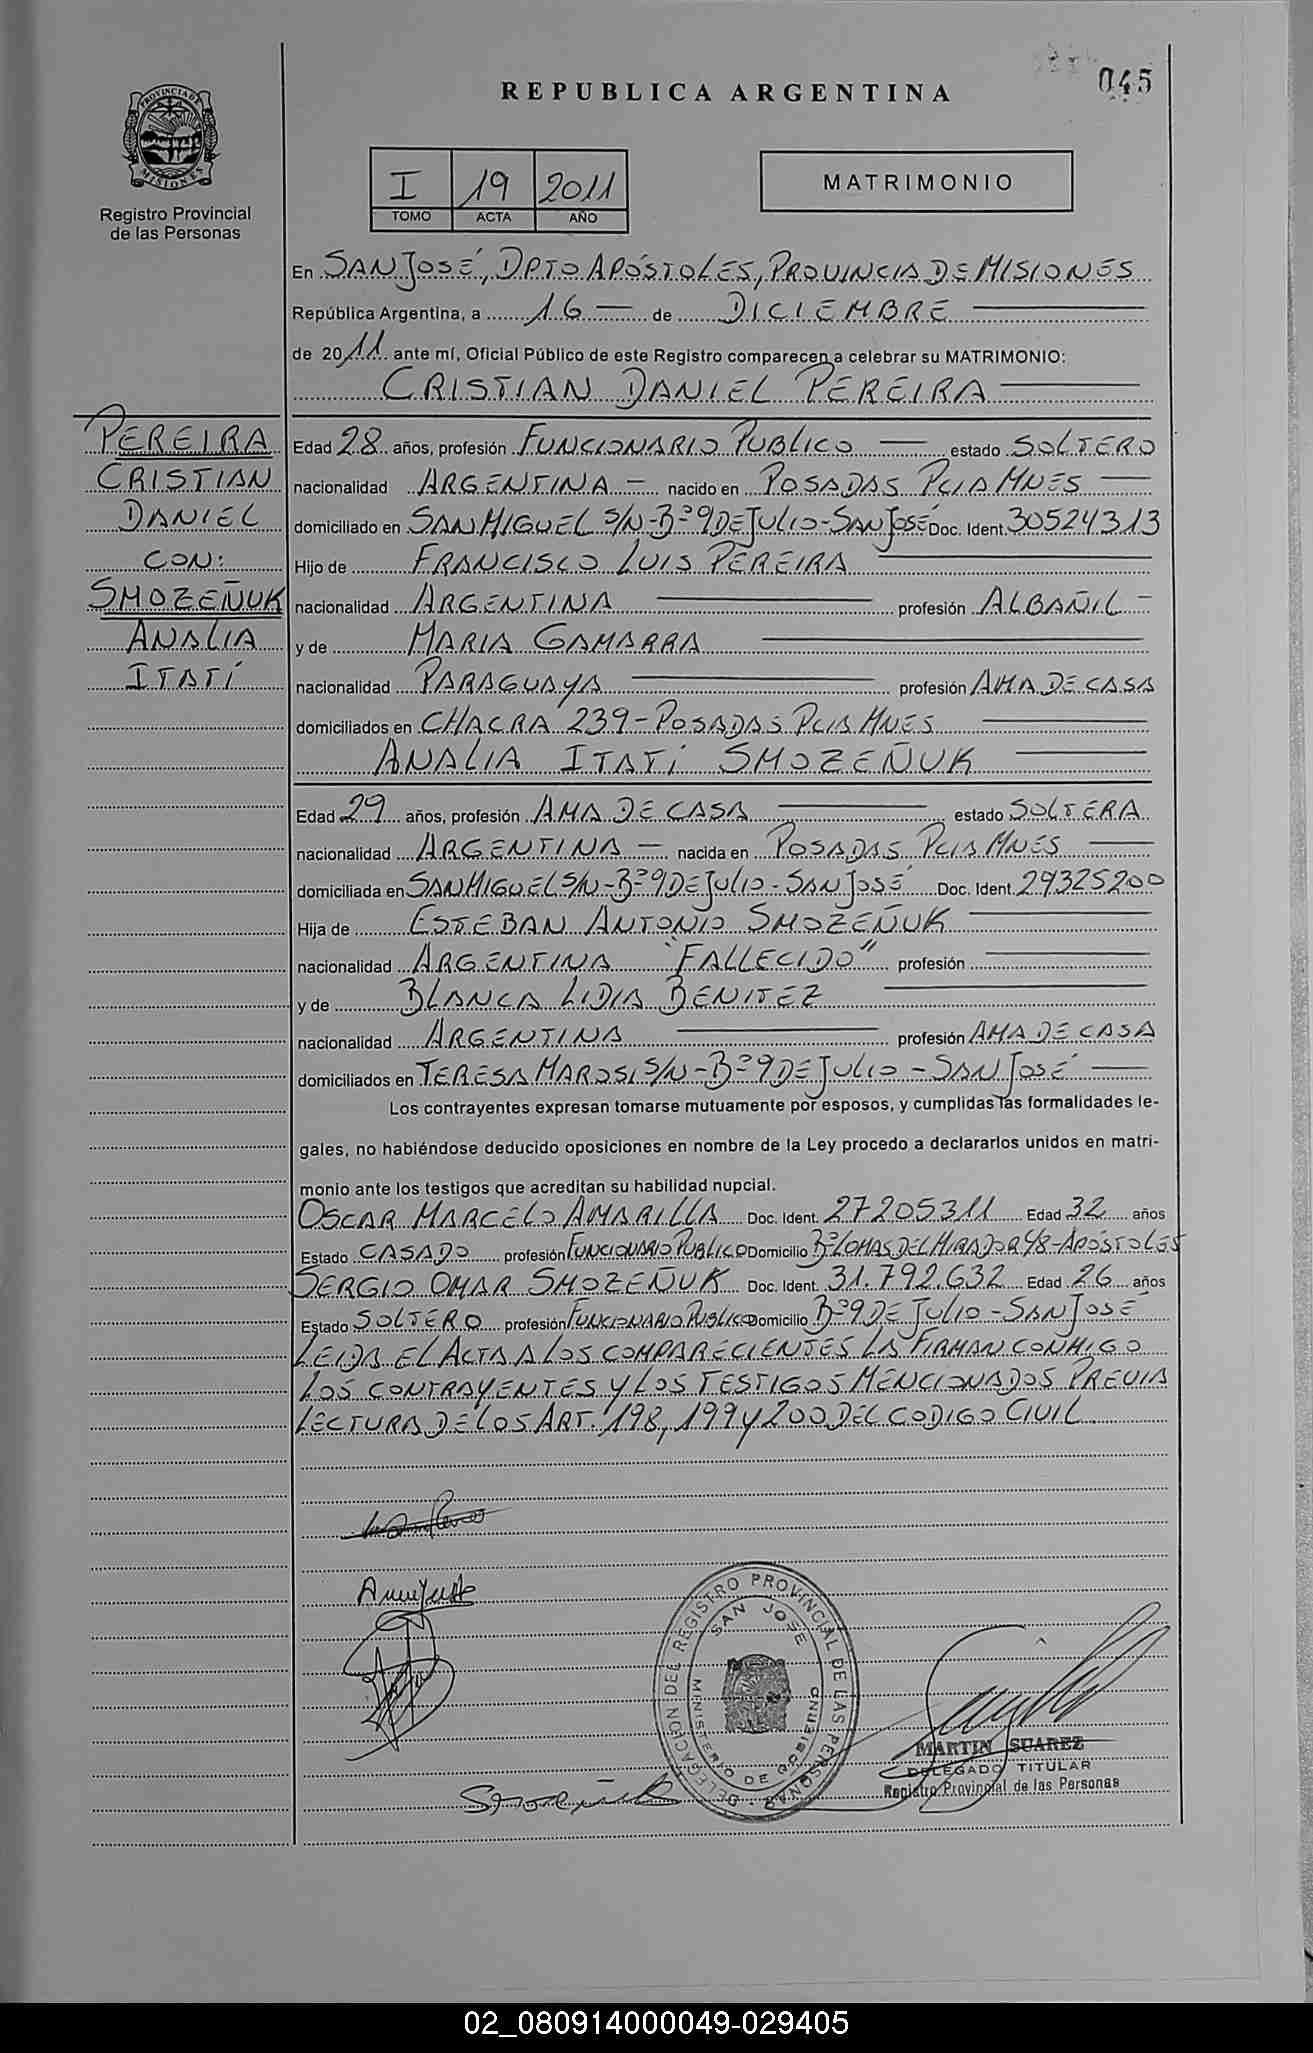 045
REPUBLICA ARGENTINA
PROVINCIA DE
MISIONES
Registro Provincial
de las Personas
I 19 2011
TOMO ACTA AÑO
MATRIMONIO
En SAN JOSÉ, DPTO APÓSTOLES, PROVINCIA DE MISIONES
República Argentina, a 16 — de DICIEMBRE
de 2011 ante mí, Oficial Público de este Registro comparecen a celebrar su MATRIMONIO:
CRISTIAN DANIEL PEREIRA
PEREIRA
CRISTIAN
DANIEL
CON:
SMOZEÑUK
ANALIA
ITATÍ
Edad 28 años, profesión FUNCIONARIO PUBLICO — estado SOLTERO
nacionalidad ARGENTINA — nacido en POSADAS PCIA MNES
domiciliado en SAN MIGUEL S/N-Bº 9 DE JULIO-SAN JOSÉ Doc. Ident. 30524313
Hijo de FRANCISCO LUIS PEREIRA
nacionalidad ARGENTINA profesión ALBAÑIL
y de MARIA GAMARRA
nacionalidad PARAGUAYA profesión AMA DE CASA
domiciliados en CHACRA 239-POSADAS PCIA MNES
ANALIA ITATÍ SMOZEÑUK
Edad 29 años, profesión AMA DE CASA estado SOLTERA
nacionalidad ARGENTINA — nacida en POSADAS PCIA MNES
domiciliada en SAN MIGUEL S/N-Bº 9 DE JULIO-SAN JOSÉ Doc. Ident. 29325200
Hija de ESTEBAN ANTONIO SMOZEÑUK
nacionalidad ARGENTINA "FALLECIDO" profesión
y de BLANCA LIDIA BENITEZ
nacionalidad ARGENTINA profesión AMA DE CASA
domiciliados en TERESA MAROSI S/N-Bº 9 DE JULIO-SAN JOSÉ
Los contrayentes expresan tomarse mutuamente por esposos, y cumplidas las formalidades le-
gales, no habiéndose deducido oposiciones en nombre de la Ley procedo a declararlos unidos en matri-
monio ante los testigos que acreditan su habilidad nupcial.
OSCAR MARCELO AMARILLA Doc. Ident. 27205311 Edad 32 años
Estado CASADO profesión FUNCIONARIO PUBLICO Domicilio Bº LOMAS DEL MIRADOR -APÓSTOLES
SERGIO OMAR SMOZEÑUK Doc. Ident. 31.792.632 Edad 26 años
Estado SOLTERO profesión FUNCIONARIO PUBLICO Domicilio Bº 9 DE JULIO-SAN JOSÉ
LEIDA EL ACTA A LOS COMPARECIENTES LA FIRMAN CONMIGO
LOS CONTRAYENTES Y LOS TESTIGOS MENCIONADOS PREVIA
LECTURA DE LOS ART. 198, 199 Y 200 DEL CODIGO CIVIL
DELEGACION DEL REGISTRO PROVINCIAL DE LAS PERSONAS
SAN JOSE
MINISTERIO DE GOBIERNO
MARTIN SUAREZ
DELEGADO TITULAR
Registro Provincial de las Personas
02_080914000049-029405